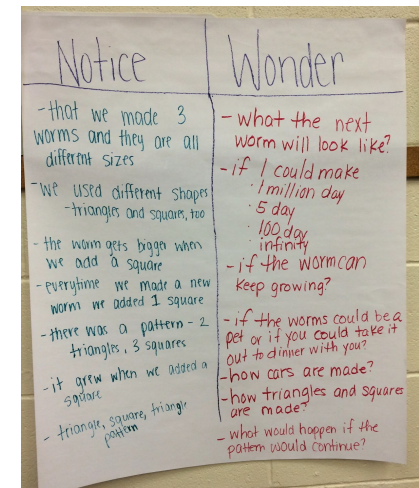 Notice
- that we made 3
worms and they are all
different sizes
- we used different shapes
- triangles and squares, too
- the worm gets bigger when
we add a square
- everytime we made a new
worm we added 1 square
- there was a pattern - 2
triangles, 3 squares
- it grew when we added a
square
- triangle, square, triangle
pattern
Wonder
- what the next
worm will look like?
- if I could make
· 1 million day
· 5 day
· 100 day
infinity
- if the worm can
keep growing?
- if the worms could be a
pet or if you could take it
out to dinner with you?
- how cars are made?
- how triangles and squares
are made?
- what would happen if the
pattern would continue?